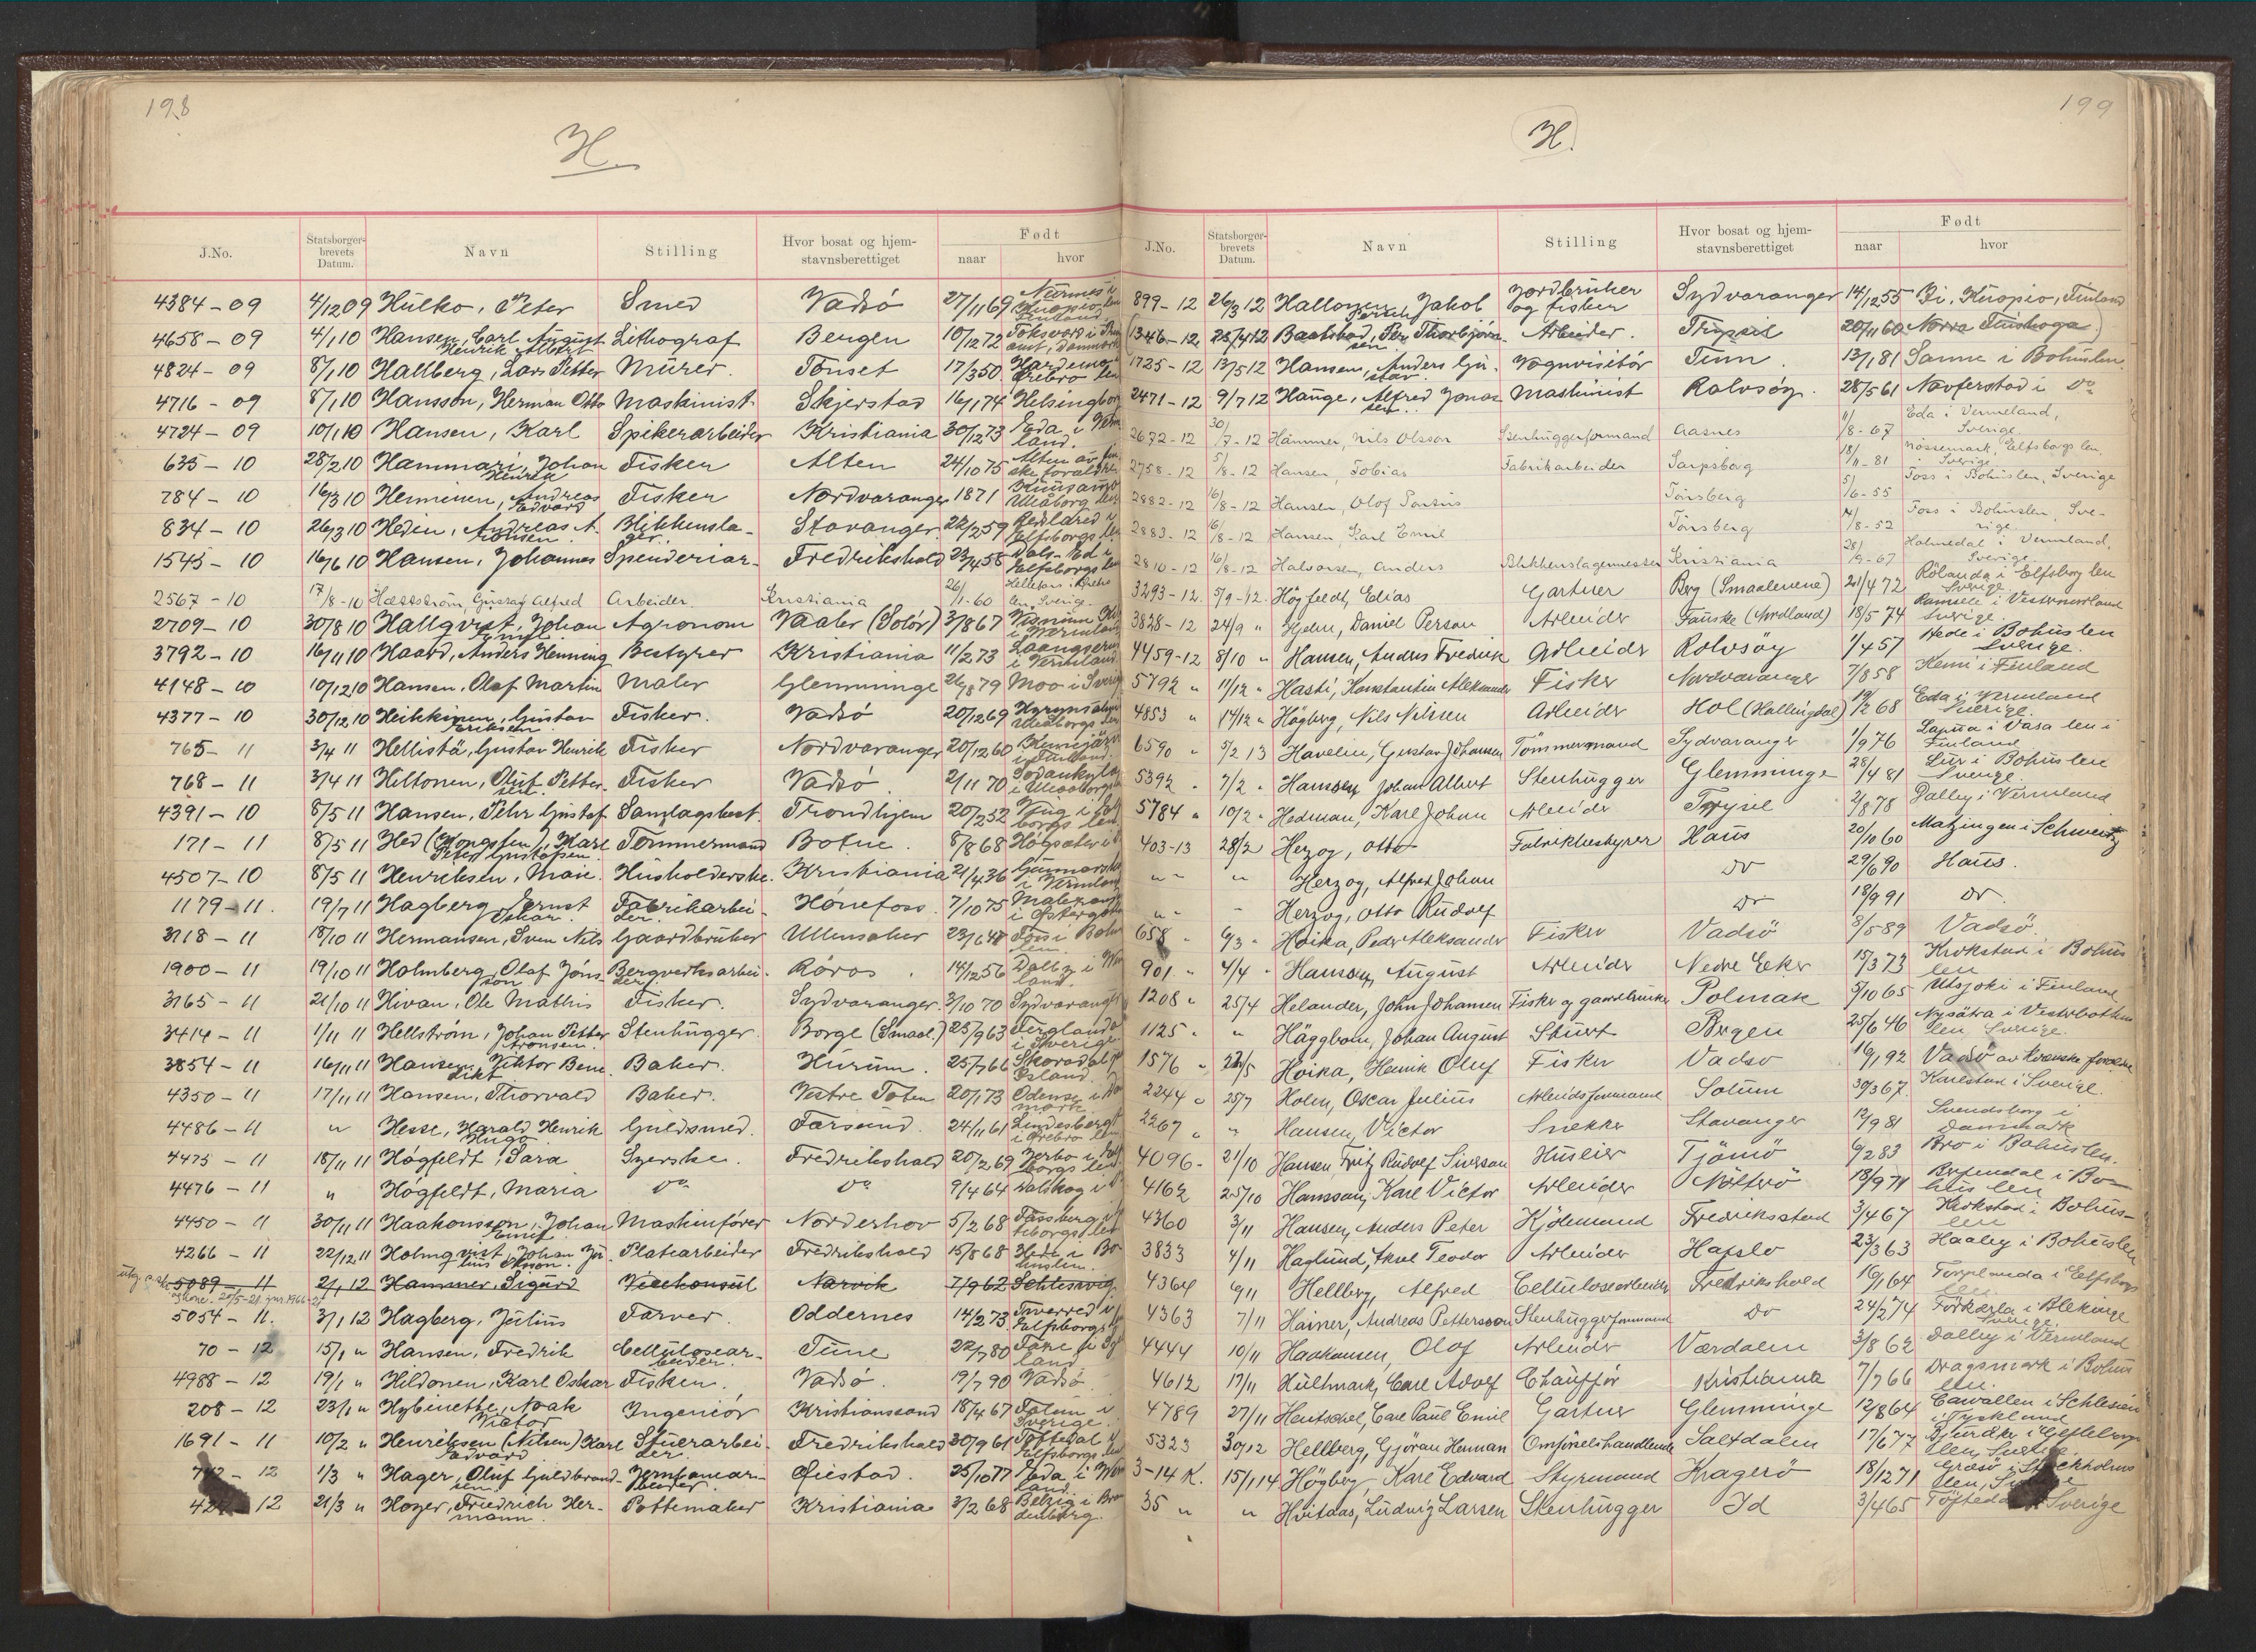 198
H.
J.No. Statsborger-brevets Datum. Navn Stilling Hvor bosat og hjem-stavnsberettiget Født naar hvor
4384 - 09 4/12 09 Hulko, Peter Smed Vadsö 27/11 69 Nurmes i Kuopio len Finland
4658 - 09 4/1 10 Hansen, Carl August Henrik Albert Lithograf Bergen 10/12 72
4824 - 09 8/1 10 Hallberg, Lars Petter Murer. Tönset 17/3 50 Hardemo i Örebro len
4716 - 09 8/1 10 Hansson, Herman Otto Maskinist. Skjerstad 16/1 74 Helsingborg
4724 - 09 10/1 10 Hansen, Karl Spikerarbeider Kristiania 30/12 73 Eda i Verm land.
635 - 10 28/2 10 Hammari, Johan Henrik Fisker Alten 24/10 75 Alten av fin ske forældre
784 - 10 16/3 10 Heminen, Andreas Edvard Fisker Nordvaranger 1871 Kuusamo Uleåborg len
834 - 10 26/3 10 Hedin, Andreas A. Blikkensla- ger. Stavanger Elfsborgs len
1545 - 10 16/6 10 Hansen, Johannes Fredrikshald 23/4 58 Dals-Ed i Elfsborgs len
2567 - 10 17/8 - 10 Hæsström, Gustav Alfred Arbeider Kristiania 26/1 - 60 len, Sverige.
2709 - 10 30/8 10 Hallqvist, Johan Agronom Vaaler (Solör) 3/8 67 i Vermland
3792 - 10 16/11 10 Haard, Anders Henning Bestyrer Kristiania 11/2 73 i Vermland
4148 - 10 10/12 10 Hansen, Olaf Martin Maler Glemminge 26/8 79 Moo i Sverig
4377 - 10 30/12 10 Heikkinen, Gustav Eriksen Fisker. Vadsö 20/12 69 Uleåborgs len
765 - 11 3/4 11 Hellistä, Gustav Henrik Fisker Nordvaranger 20/12 60 Kemijärvi i Finland
768 - 11 3/4 11 Heltonen, Oluf Petter- sen. Fisker Vadsö 2/11 70 Sodankylä i Uleåborgs
4391 - 10 8/5 11 Hansen, Pehr Gustaf Samlagsbest. Trondhjem 20/2 52
171 - 11 8/5 11 Hed (Kongssen), Karl Peter Gustafsen. Tömmermand Botne. 8/8 68 Högsäter i
4507 - 10 8/5 11 Henriksen, Marie. Husholderske. Kristiania 21/4 36 Gunnarskog i Vermland
1179 - 11. 19/7 11 Hagberg, Ernst Oskar. Fabrikarbei- der. Hönefoss. 7/10 75 i Östergötl
3118 - 11 18/10 11 Hermansen, Sven Nils Gaardbruker Ullensaker 23/6 48 Foss i Bohus len
1900 - 11 19/10 11 Holmberg, Olaf Jöns- son Bergverksarbei- der. Röros. 14/12 56 Dalby i Verm land.
3165 - 11 21/10 11 Hivan, Ole Mathis Fisker. Sydvaranger. 3/10 70 Sydvaranger
3414 - 11 1/11 11 Hellström, Johan Petter Aronsen. Stenhugger. Borge (Smaal.) 25/9 63 i Sverige.
3854 - 11 16/11 11 Hansen, Viktor Bene- dikt Baker. Hurum. 25/7 66 Island.
4350 - 11 17/11 11 Hansen, Thorvald Baker. Vestre Toten 20/1 73 Odense i Dan mark
4486 - 11 " Hesse, Harald Henrik Hugo Guldsmed. Farsund. 24/11 61 Lindesberg i Örebro len
4475 - 11 18/11 11 Högfeldt, Sara Syerske. Fredrikshald 20/2 69
4476 - 11 " Högfeldt, Maria do do 9/4 64 Ralskog i
4450 - 11 30/11 11 Haakonsson, Johan Emil Maskinförer Norderhov 5/2 68
4266 - 11 22/12 11 Holmqvist, Johan Ju- lius Olsson. Platearbeider Fredrikshald 15/8 68 Hede i Bo- huslen.
5089 - 11 2/1 12 Hammer, Sigurd Vicekonsul Narvik 7/9 62 Schlesvig
5054 - 11. 3/1 12 Hagberg, Julius Farver. Oddernes 14/2 73 Tverred i Elfsborgs
70 - 12 15/1 " Hansen, Fredrik Cellulosear- beider. Tune 22/7 80
4988 - 12 19/1 " Hildonen, Karl Oskar Fisker. Vadsö. 19/7 90 Vadsö
208 - 12 23/1 " Hybinette, Noak Victor Ingeniör Kristianssand 18/4 67 Falun i Sverige.
1691 - 11 10/2 " Henriksen (Nilsen) Karl Edvard Stuerarbei- der. Fredrikshald 30/9 61 Töftedal i Elfsborgs len
- 12 1/3 " Hager, Oluf Guldbrand- sen. Jernbanear- beider. Öiestad. 25/10 77 Eda i Verm land.
- 12 21/3 " Hoyer, Friedrich Her- mann. Pottemaker Kristiania 3/2 68 Belzig i Bran denburg.
199
H.
J.No. Statsborger-brevets Datum. Navn Stilling Hvor bosat og hjem-stavnsberettiget Født naar hvor
899 - 12 26/3 12 Hallonen, Jakob Jordbruker og fisker Sydvaranger 14/12 55 Ii, Kuopio, Finland
(1346 - 12 25/4 12 Baatstad, Per Thorbjörn- sen Arbeider. Trysil 20/11 60 Norra Finskoga)
1725 - 12 13/5 12 Hansen, Anders Gu- stav. Vognvisitör Tinn 13/1 81 Sanne i Bohuslen
2471 - 12 9/7 12 Hauge, Alfred Jonas sen. Maskinist Rolvsöy. 28/5 61 Naverstad i do
2672 - 12 30/7 - 12 Hammer, Nils Olsson Stenhuggerformand Aasnes 11/8 - 67 Eda i Vermeland, Sverige.
2758 - 12 5/8 - 12 Hansen, Tobias Fabrikarbeider Sarpsborg 18/11 - 81 Nössemark, Elfsborgs len. Sverige
2882 - 12 16/8 - 12 Hansen, Olof Tönsberg 5/6 - 55 Foss i Bohuslen, Sverige
2883 - 12 16/8 - 12 Hansen, Karl Emil Tönsberg /8 - 52 Foss i Bohuslen, Sve- rige.
2810 - 12 16/8 - 12 Halvorsen, Anders Blikkenslagermester Kristiania 28/9 - 67 Holmedal i Vermland, Sverige
3293 - 12. 5/9 - 12. Högfeldt, Edias Gartner Berg (Smaalenene) 21/4 72 Rölanda i Elfsborg len Sverige
3828 - 12 24/9 " Hjelm, Daniel Person Arbeider Fauske (Nordland) 18/5 74 Ramsele i Vesternorrland Sverige.
4459 - 12 8/10 " Hansen, Anders Fredrik Arbeider Rolvsöy 1/4 57 Hede i Bohuslen Sverige.
5792 " 11/12 " Hasti, Konstantin Aleksander Fisker Nordvaranger 7/8 58 Kemi i Finland
4853 " 14/12 " Högberg, Nils Nilssen Arbeider Hol (Hallingdal) 19/2 68 Eda i Vermland Sverige.
6590 " 5/2 13 Havelin, Gustav Johansen Tömmermand Sydvaranger 1/9 76 Lapua i Vasa len i Finland
5392 " 7/2 " Hansson, Johan Albert Stenhugger Glemminge 28/4 81 Lur i Bohuslen Sverige.
5784 " 10/2 " Hedman, Karl Johan Arbeider Trysil 2/8 78 Dalby i Vermland
403 - 13 28/2 Herzog, Otto Fabrikbestyrer Haus 20/10 60 Matzingen i Schweitz
" " " Herzog, Alfred Johan do 29/6 90 Haus.
" " " Herzog, Otto Rudolf do 18/9 91 do.
658 " 6/3 " Hoika, Peder Aleksander Fisker Vadsö 8/5 89 Vadsö.
901 " 4/4 " Hansson, August Arbeider Nedre Eker 15/3 73 Krokstad i Bohus len
1208 " 25/4 Helander, John Johansen Fisker og gaardbruker Polmak 5/10 65 Utsjoki i Finland
1125 " " Häggbom, Johan August Stuert Bergen 25/6 46 Nysätra i Vesterbotten len Sverige.
1576 " 22/5 Hoika, Henrik Oluf Fisker Vadsö 16/1 92 Vadsö av kvænske foreldre
2244 " 25/7 Holm, Oscar Julius Arbeidsformand Solum 30/3 67. Karlstad i Sverige.
2267 " " Hansen, Victor Snekker Stavanger 12/9 81 Svendsborg i Danmark
4096 - 21/10 Hansen, Fritz Rudolf Siversen Huseier Tjömö 6/2 83 Bro i Bohuslen.
4162 25/10 Hansson, Karl Victor Arbeider Nötterö 18/9 71 Brefendal i Bo- hus len
4360 3/11 Hansen, Anders Peter Kjölemand Fredriksstad 3/4 67 Krokstad i Bohus- len
3833 4/11 Haglund, Axel Teodor Arbeider Hafslo 23/3 63 Haaby i Bohuslen
4364 6/11 Hellberg, Alfred Cellulosearbeider Fredrikshald 16/1 64 Torplanda i Elfsborgs len
4363 7/11 Hainer, Andreas Pettersson Stenhuggerformand do 24/2 74 Förkärla i Blekinge Sverige.
4444 10/11 Haakansen, Olof Arbeider Værdalen 3/8 62 Dalby i Vermland
4612 17/11 Hultmark, Carl Adolf Chaufför Kristiania 7/7 66 Dragsmark i Bohus len.
4789 27/11 Hentschel, Carl Paul Emil Gartner Glemminge 12/8 64 Cawallen i Schlesien i Tyskland
5323 30/12 Hellberg, Gjöran Herman Omförselshandlende Saltdalen 17/6 77 Bjuråker i Gefleborgs len, Sverige.
3-14 K. 15/1 14 Högberg, Karl Edvard Styrmand Kragerö 18/12 71 Gräsö i Stockholms len,
35 " " Hvitaas, Ludwig Larsen Stenhugger Id 3/4 65 Sverige